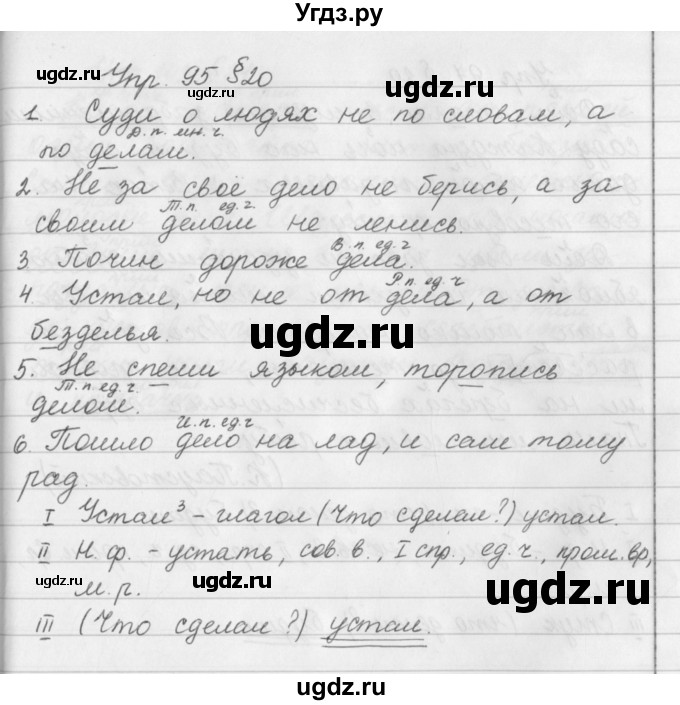 Угдз.ру
Упр. 95 §20
1. Суди о людях не по словам, а
Д.п. мн. ч.
по делам.
2. Не за своё дело не берись, а за
Т.п. ед. г
своим делом не ленись.
В.п. ед. г
3. Почин дороже дела.
Р.п. ед. ч
4. Устал, но не от дела, а от
безделья.
5. Не спеши языком, торопись
Т.п. ед. ч.
делом.
И.п. ед. г
6. Пошло дело на лад, и сам тому
рад.
I Устал³ – глагол (Что сделал?) устал.
II Н.ф. – устать, сов. в., I спр., ед. ч., прош. вр,
м. р.
III (Что сделал?) устал.
ugdz.ru
ugdz.ru
ugdz.ru
ugdz.ru
ugdz.ru
ugdz.ru
ugdz.ru
ugdz.ru
ugdz.ru